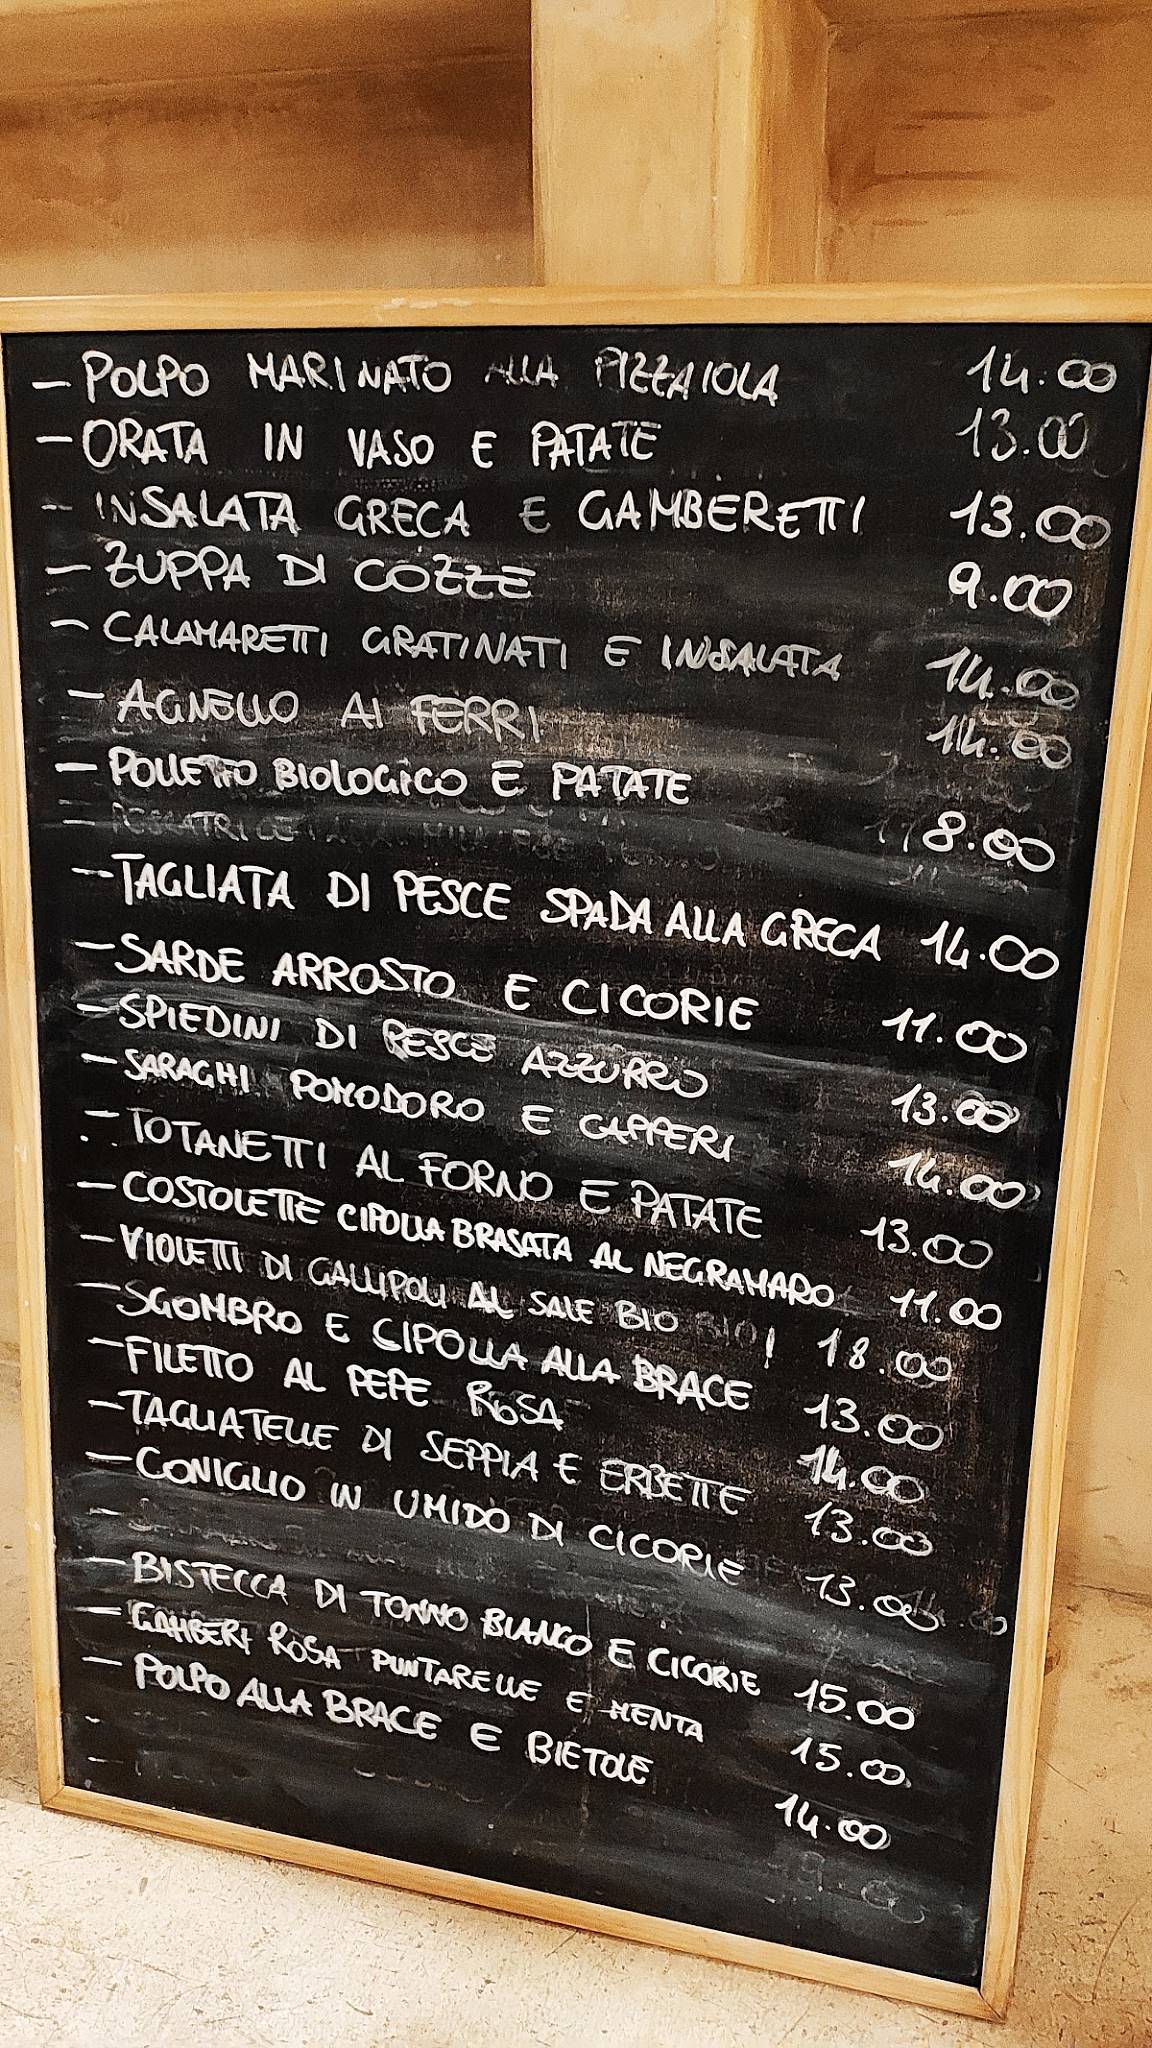 - POLPO MARINATO ALLA PIZZAIOLA 14.00
- ORATA IN VASO E PATATE 13.00
- INSALATA GRECA E GAMBERETTI 13.00
- ZUPPA DI COZZE 9.00
- CALAMARETTI GRATINATI E INSALATA 14.00
- AGNELLO AI FERRI 14.00
- POLLETTO BIOLOGICO E PATATE 8.00
- TAGLIATA DI PESCE SPADA ALLA GRECA 14.00
- SARDE ARROSTO E CICORIE 11.00
- SPIEDINI DI PESCE AZZURRO 13.00
- SARAGHI POMODORO E CAPPERI 14.00
- TOTANETTI AL FORNO E PATATE 13.00
- COSTOLETTE CIPOLLA BRASATA AL NEGRAMARO 11.00
- VIOLETTI DI GALLIPOLI AL SALE BIO BIO! 18.00
- SGOMBRO E CIPOLLA ALLA BRACE 13.00
- FILETTO AL PEPE ROSA 14.00
- TAGLIATELLE DI SEPPIA E ERBETTE 13.00
- CONIGLIO IN UMIDO DI CICORIE 13.00
- BISTECCA DI TONNO BIANCO E CICORIE 15.00
- GAMBERI ROSA PUNTARELLE E MENTA 15.00
- POLPO ALLA BRACE E BIETOLE 14.00